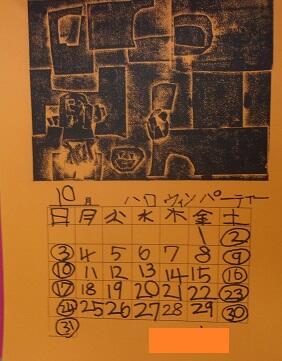 10月 ハロウィンパーティー
日 月 火 水 木 金 土
1 2
3 4 5 6 7 8 9
10 11 12 13 14 15 16
17 18 19 20 21 22 23
24 25 26 27 28 29 30
31